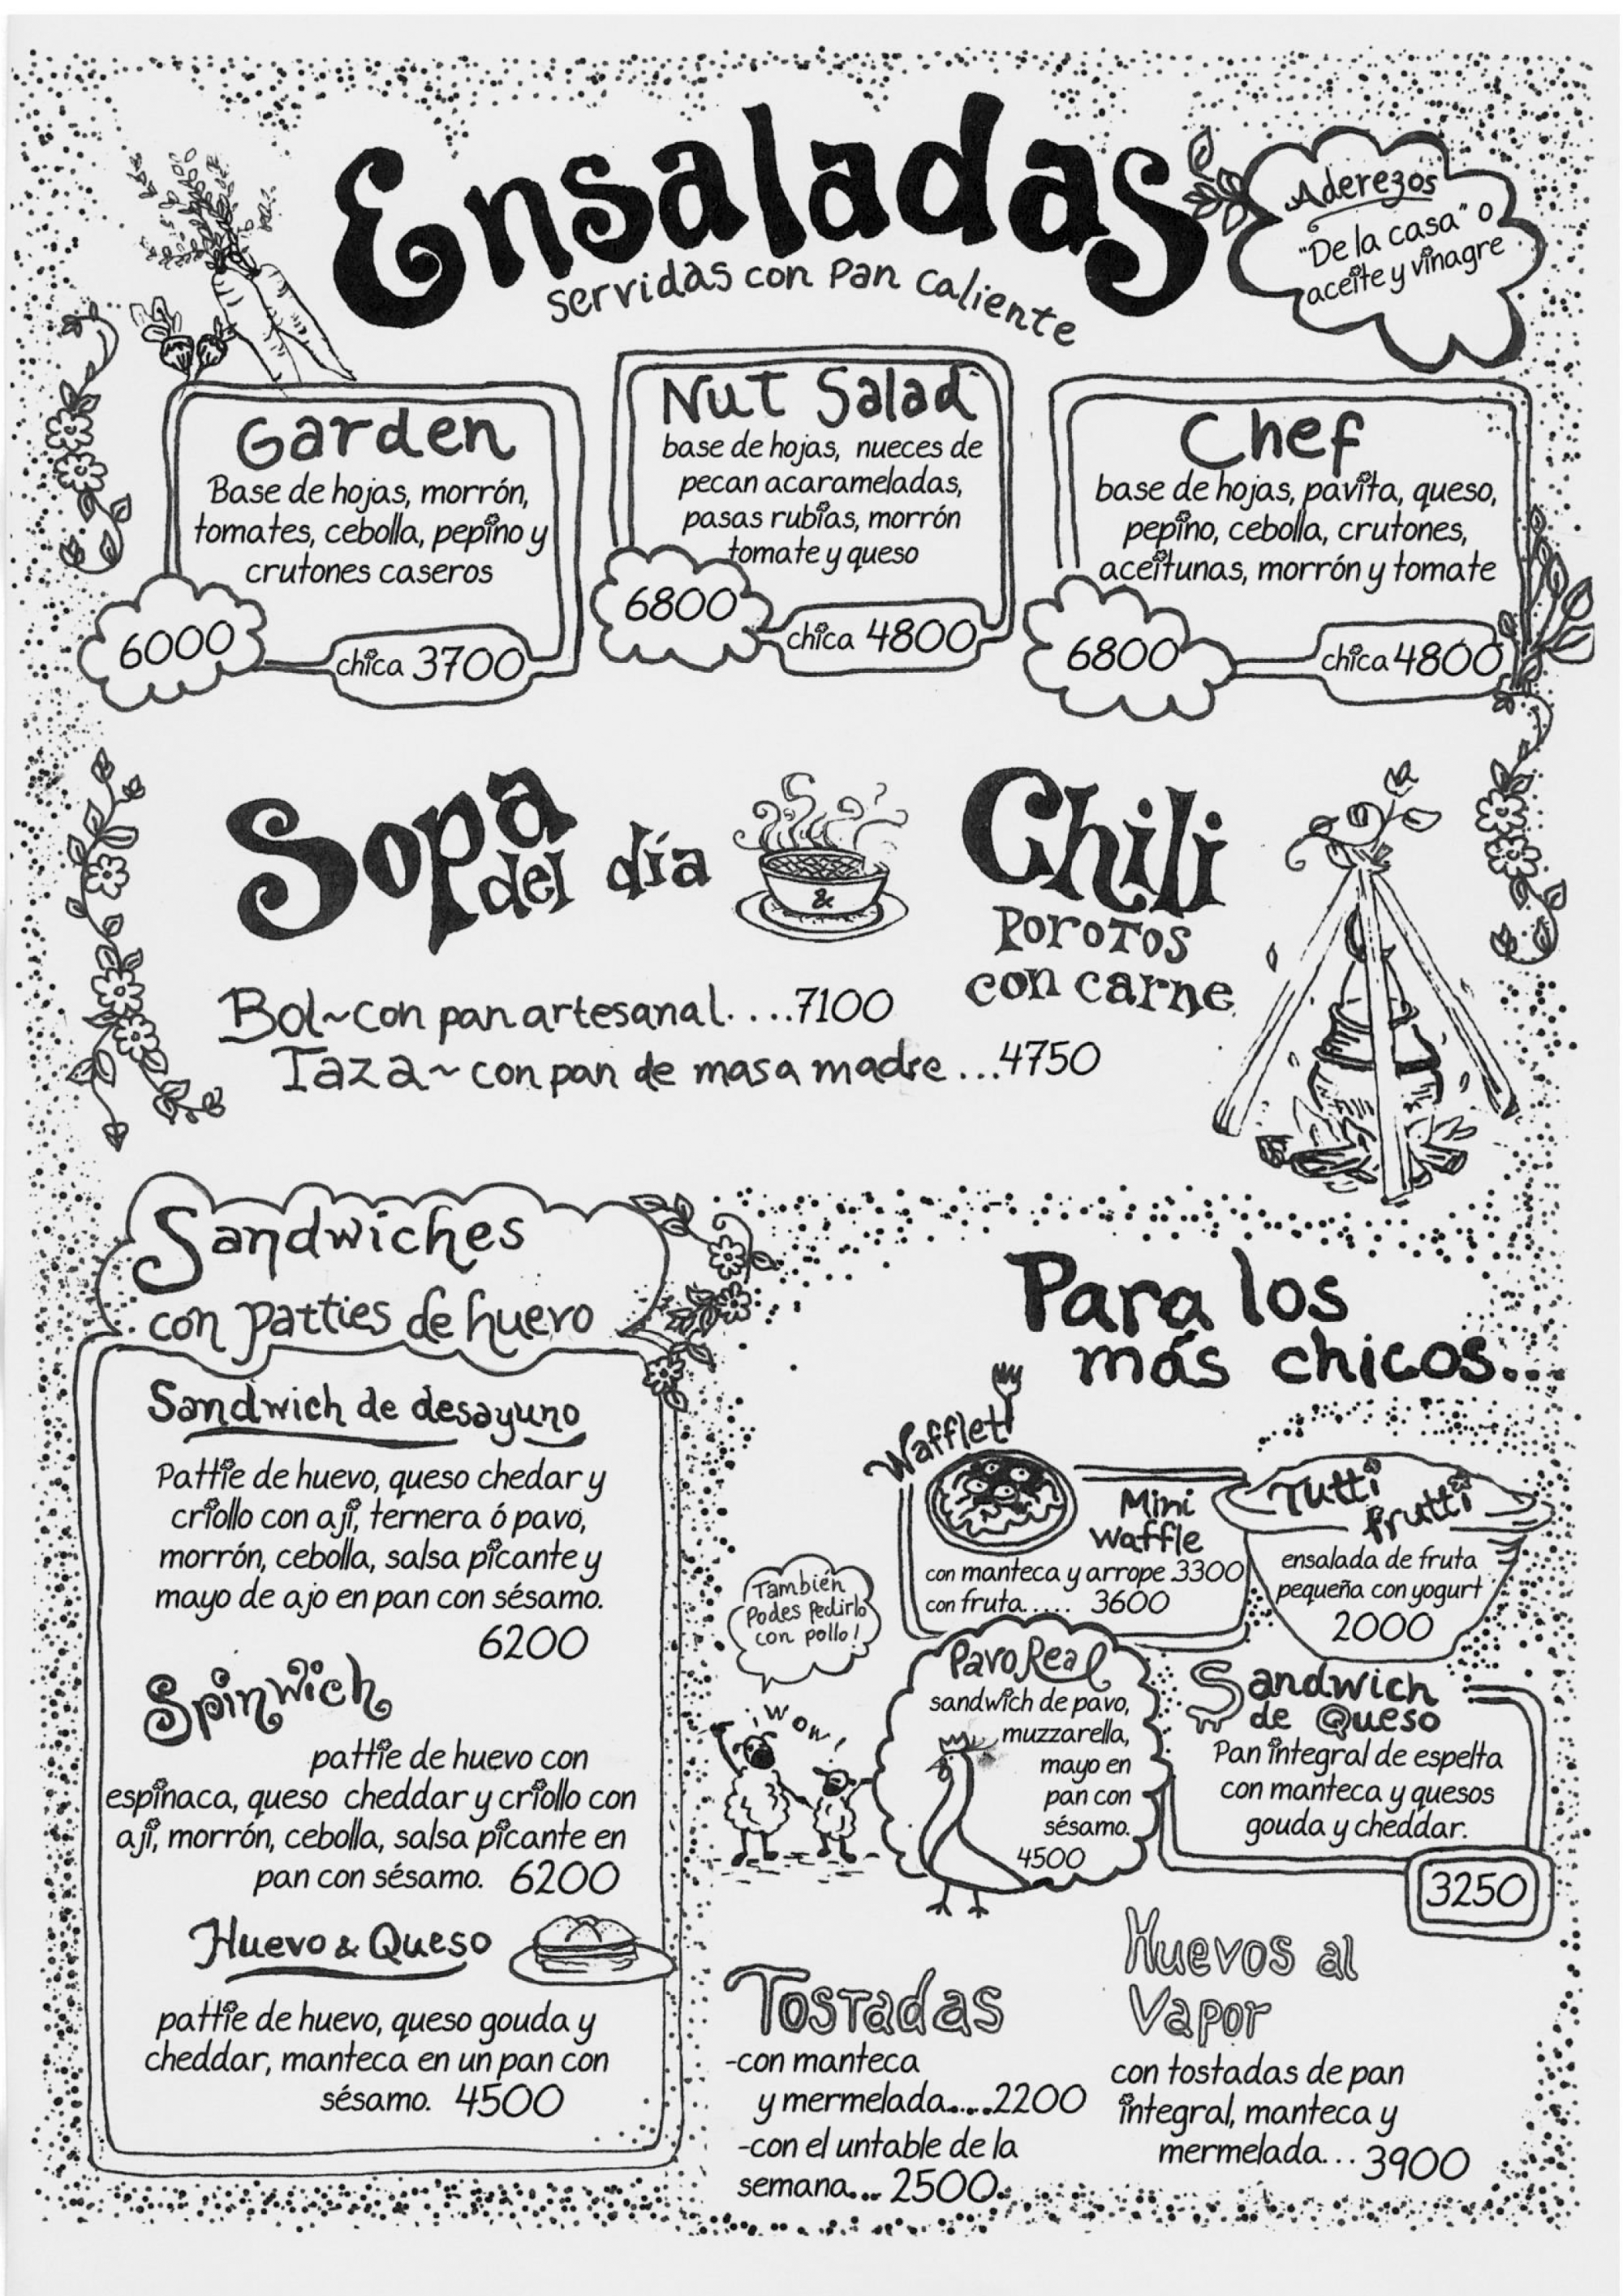 Ensaladas
servidas con Pan Caliente
Aderezos
"De la casa" o
aceite y vinagre
Garden
Base de hojas, morrón,
tomates, cebolla, pepino y
crutones caseros
6000
chica 3700
Nut Salad
base de hojas, nueces de
pecan acarameladas,
pasas rubias, morrón
tomate y queso
6800
chica 4800
Chef
base de hojas, pavita, queso,
pepino, cebolla, crutones,
aceitunas, morrón y tomate
6800
chica 4800
Sopa
del día
&
Chili
Porotos
con carne
Bol~con pan artesanal....7100
Taza~con pan de masa madre...4750
Sandwiches
con patties de huevo
Sandwich de desayuno
Pattie de huevo, queso chedar y
criollo con ají, ternera ó pavo,
morrón, cebolla, salsa picante y
mayo de ajo en pan con sésamo.
6200
Spinwich
pattie de huevo con
espinaca, queso cheddar y criollo con
ají, morrón, cebolla, salsa picante en
pan con sésamo. 6200
Huevo & Queso
pattie de huevo, queso gouda y
cheddar, manteca en un pan con
sésamo. 4500
Para los
más chicos...
Wafflet
Mini
waffle
con manteca y arrope 3300
con fruta..... 3600
Tutti
frutti
ensalada de fruta
pequeña con yogurt
2000
También
Podes Pedirlo
con pollo!
¡Wow!
Pavo Real
sandwich de pavo,
muzzarella,
mayo en
pan con
sésamo.
4500
Sandwich
de Queso
Pan integral de espelta
con manteca y quesos
gouda y cheddar.
3250
Tostadas
-con manteca
y mermelada.....2200
-con el untable de la
semana... 2500
Huevos al
Vapor
con tostadas de pan
integral, manteca y
mermelada... 3900